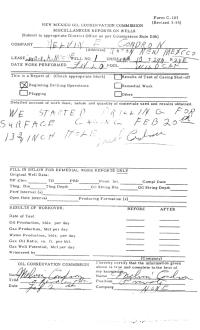 (Form C-103)
(Revised 3-55)
NEW MEXICO OIL CONSERVATION COMMISSION
MISCELLANEOUS REPORTS ON WELLS
(Submit to appropriate District Office as per Commission Rule 1106)
COMPANY MELVIN E CONDRON
(Address)
LEASE WELL NO. 1
DATE WORK PERFORMED POOL WILDCAT
This is a Report of: (Check appropriate block) Results of Test of Casing Shut-off
X Beginning Drilling Operations Remedial Work
Plugging Other
Detailed account of work done, nature and quantity of materials used and results obtained.
WE STARTED DRILLING FOR
SURFACE CASING FEB 20th
13 3/4 INCH HOLE
FILL IN BELOW FOR REMEDIAL WORK REPORTS ONLY
Original Well Data:
DF Elev. TD PBD Prod. Int. Compl Date
Tbng. Dia Tbng Depth Oil String Dia Oil String Depth
Perf Interval (s)
Open Hole Interval Producing Formation (s)
RESULTS OF WORKOVER: BEFORE AFTER
Date of Test
Oil Production, bbls. per day
Gas Production, Mcf per day
Water Production, bbls. per day
Gas Oil Ratio, cu. ft. per bbl.
Gas Well Potential, Mcf per day
Witnessed by
(Company)
OIL CONSERVATION COMMISSION I hereby certify that the information given above is true and complete to the best of my knowledge.
Name Name
Title Position
Date Company